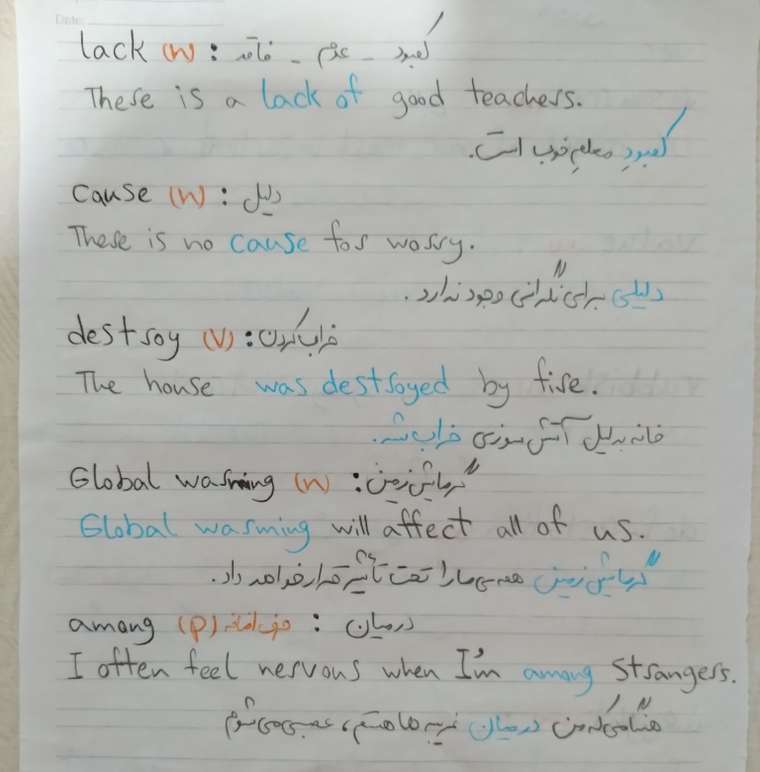 Date:
lack (n) : کمبود - عدم - فاقد
There is a lack of good teachers.
کمبودِ معلمِ خوب است.
cause (n) : دلیل
There is no cause for worry.
دلیلی برای نگرانی وجود ندارد.
destroy (v) : خراب کردن
The house was destroyed by fire.
خانه به دلیل آتش سوزی خراب شد.
Global warming (n) : گرمایش زمین
Global warming will affect all of us.
گرمایش زمین همه ی ما را تحت تأثیر قرار خواهد داد.
among (p) حرف اضافه : درمیان
I often feel nervous when I'm among strangers.
هنگامی که من درمیان غریبه ها هستم، عصبی می شوم